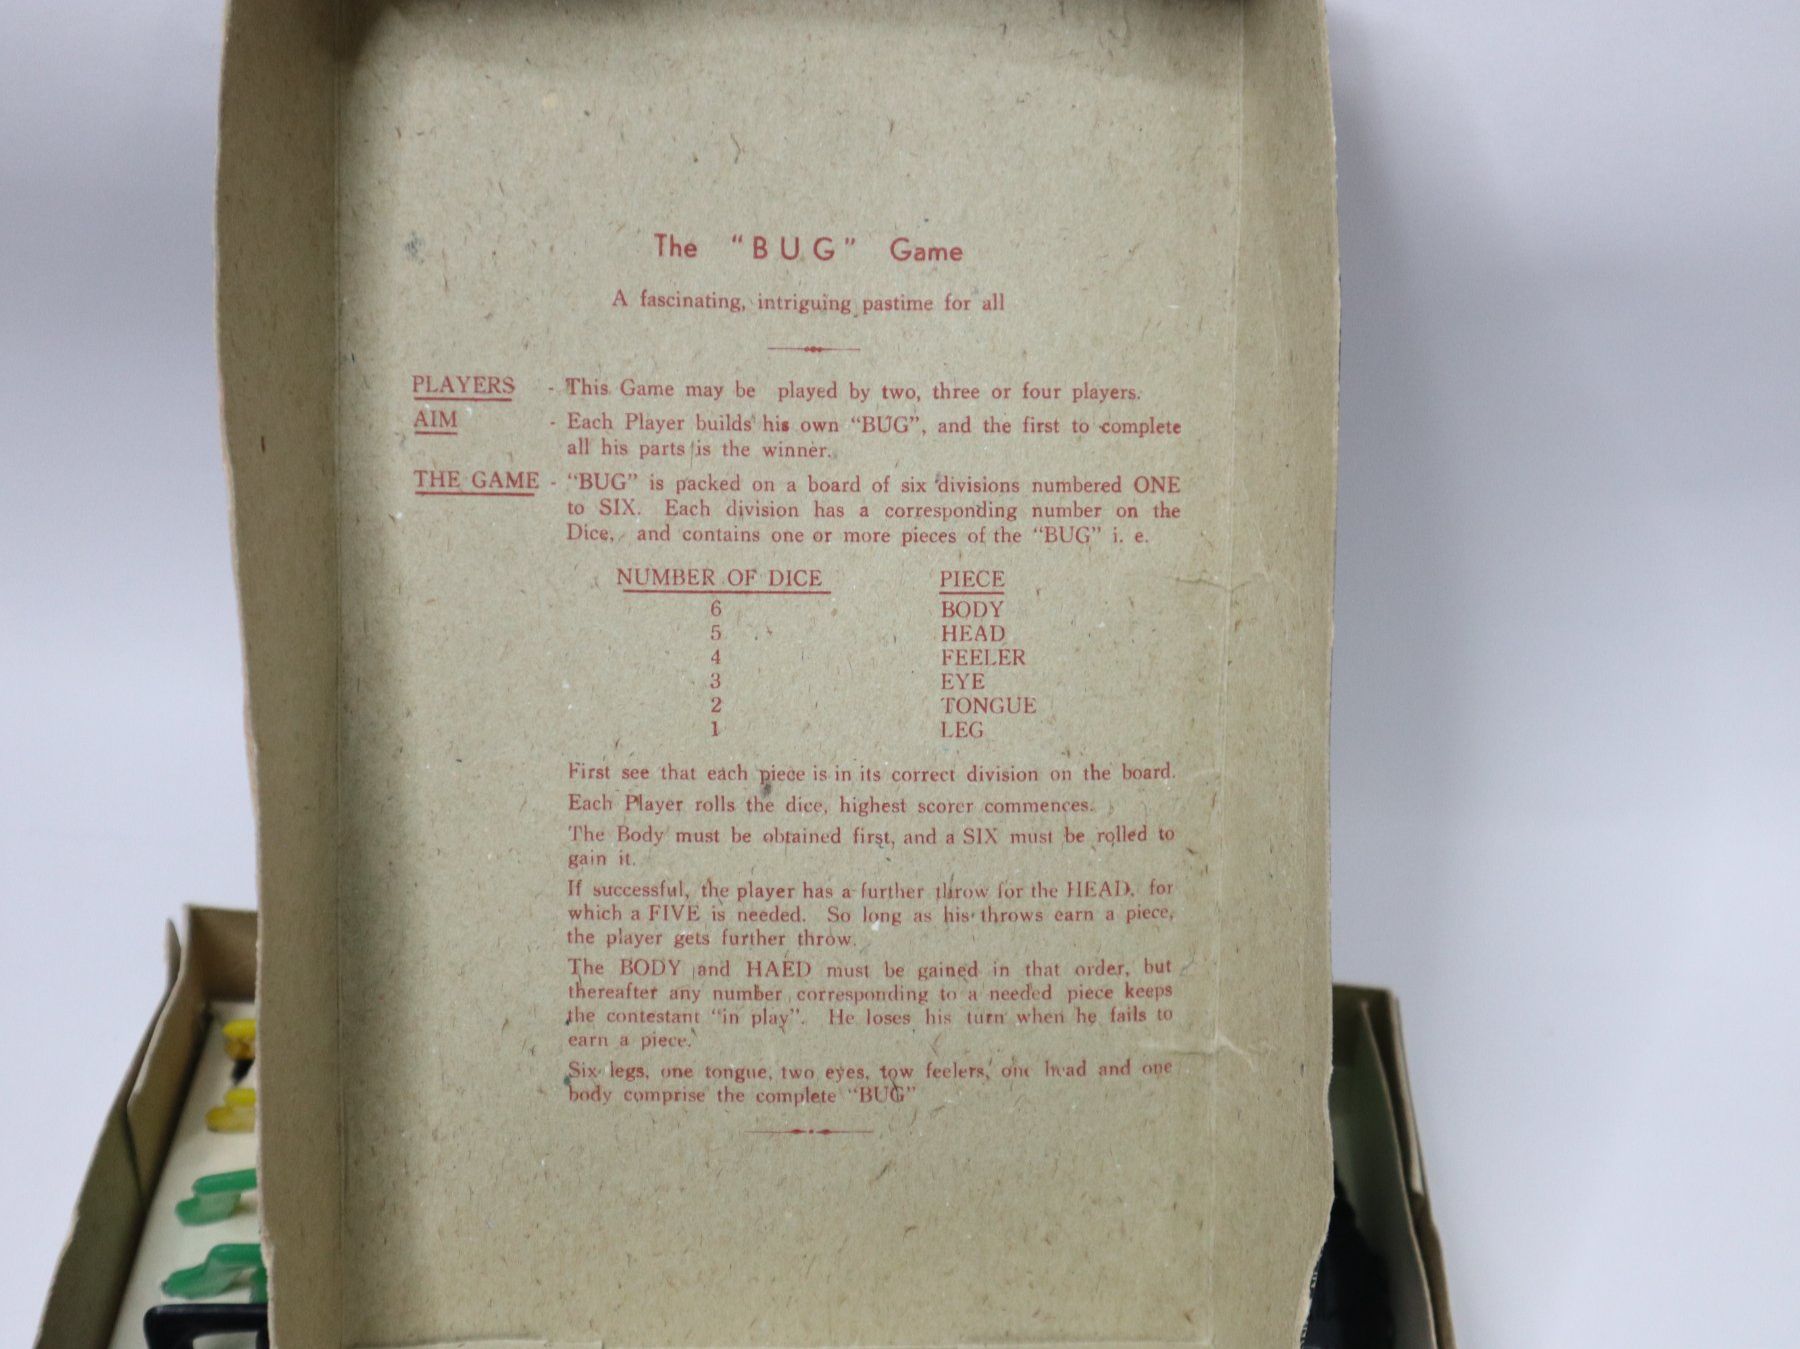 The "BUG" Game
A fascinating, intriguing pastime for all
PLAYERS - This Game may be played by two, three or four players.
AIM - Each Player builds his own "BUG", and the first to complete
all his parts is the winner.
THE GAME - "BUG" is packed on a board of six divisions numbered ONE
to SIX. Each division has a corresponding number on the
Dice, and contains one or more pieces of the "BUG" i. e.
NUMBER OF DICE PIECE
6 BODY
5 HEAD
4 FEELER
3 EYE
2 TONGUE
1 LEG
First see that each piece is in its correct division on the board.
Each Player rolls the dice, highest scorer commences.
The Body must be obtained first, and a SIX must be rolled to
gain it.
If successful, the player has a further throw for the HEAD, for
which a FIVE is needed. So long as his throws earn a piece,
the player gets further throw.
The BODY and HAED must be gained in that order, but
thereafter any number corresponding to a needed piece keeps
the contestant "in play". He loses his turn when he fails to
earn a piece.
Six legs, one tongue, two eyes, tow feelers, one head and one
body comprise the complete "BUG"